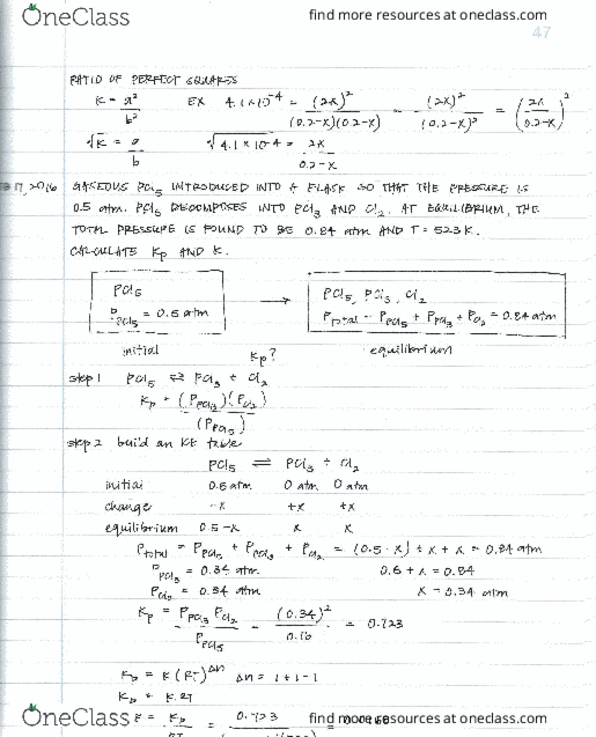 OneClass
find more resources at oneclass.com
47
RATIO OF PERFECT SQUARES
K = a² / b²   EX   4.1 x 10⁻⁴ = (2x)² / (0.2-x)(0.2-x) = (2x)² / (0.2-x)² = (2x / 0.2-x)²
√K = a / b   √4.1 x 10⁻⁴ = 2x / 0.2-x
17, 2016 GASEOUS PCl₅ INTRODUCED INTO A FLASK SO THAT THE PRESSURE IS
0.5 atm. PCl₅ DECOMPOSES INTO PCl₃ AND Cl₂. AT EQUILIBRIUM, THE
TOTAL PRESSURE IS FOUND TO BE 0.84 atm AND T = 523 K.
CALCULATE Kp AND K.
PCl₅
P PCl₅ = 0.5 atm
→
PCl₅, PCl₃, Cl₂
P total = P PCl₅ + P PCl₃ + P Cl₂ = 0.84 atm
initial   Kp?   equilibrium
step 1   PCl₅ ⇌ PCl₃ + Cl₂
Kp = (P PCl₃)(P Cl₂) / (P PCl₅)
step 2 build an ICE table
PCl₅ ⇌ PCl₃ + Cl₂
initial   0.5 atm   0 atm   0 atm
change   -x   +x   +x
equilibrium   0.5-x   x   x
P total = P PCl₅ + P PCl₃ + P Cl₂ = (0.5-x) + x + x = 0.84 atm
P PCl₃ = 0.34 atm   0.5 + x = 0.84
P Cl₂ = 0.34 atm   x = 0.34 atm
Kp = P PCl₃ P Cl₂ / P PCl₅ = (0.34)² / 0.16 = 0.723
Kp = K(RT)^Δn   Δn = 1 + 1 - 1
Kp = K.RT
K = Kp / RT = 0.723
OneClass
find more resources at oneclass.com